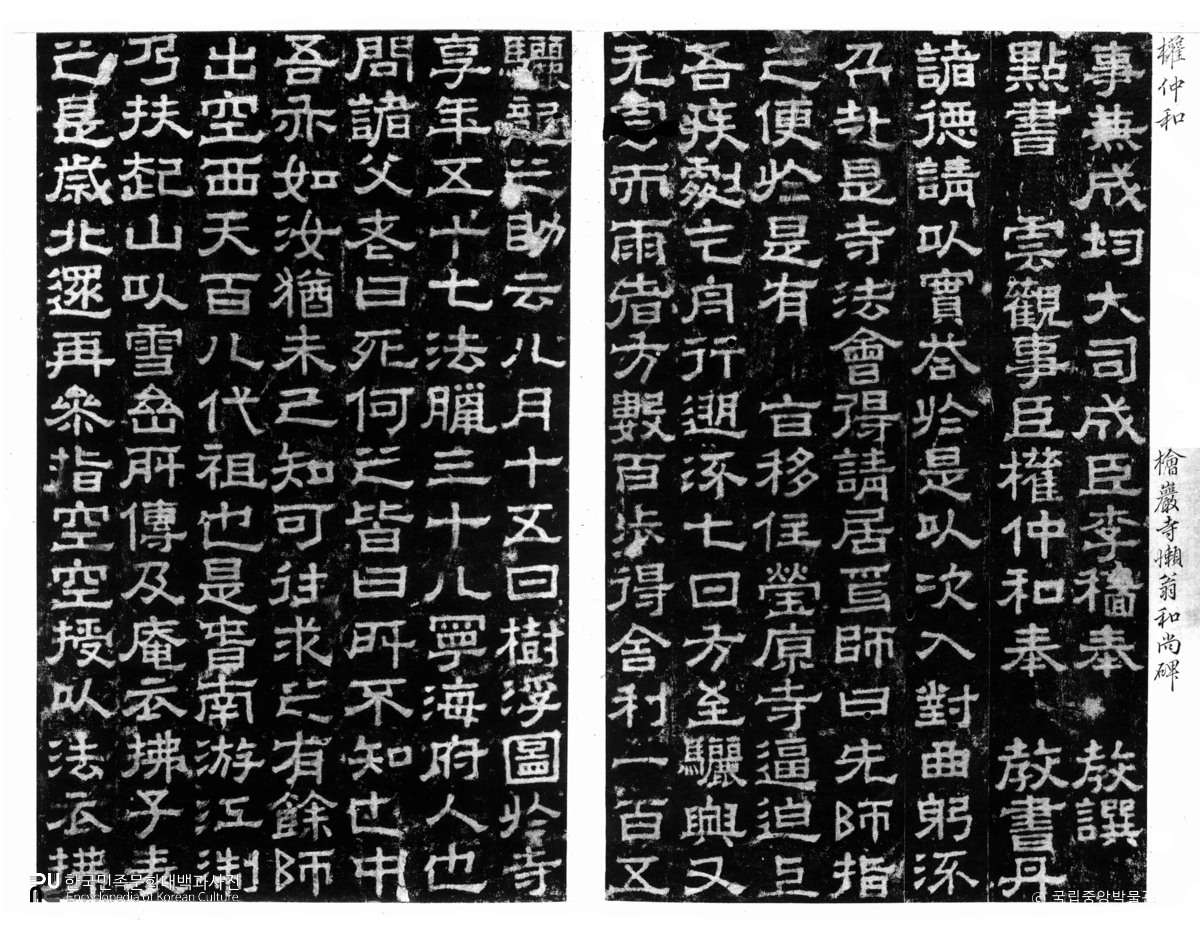 權仲和
檜巖寺懶翁和尚碑
事兼成均大司成臣李穡奉 教譔
點書 雲觀事臣權仲和奉 教書丹
諸德請以實荅於是以次入對曲躬流
召赴是寺法會得請居焉師曰先師指
之便於是有 旨移住瑩原寺逼迫上
吾疾劇乞舟行遡流七日方至驪興又
无雲而雨者方數百步得舍利一百五
驪記之助云八月十五日樹浮圖於寺
享年五十七法臘三十八寧海府人也
問諸父老曰死何之皆曰所不知也中
吾亦如汝猶未已知可往求之有餘師
出空西天百八代祖也是旹南游江淛
乃扶起山以雪嵒所傳及庵衣拂子表
之是歲北還再參指空空授以法衣拂
한국민족문화대백과사전
Encyclopedia of Korean Culture
© 국립중앙박물관